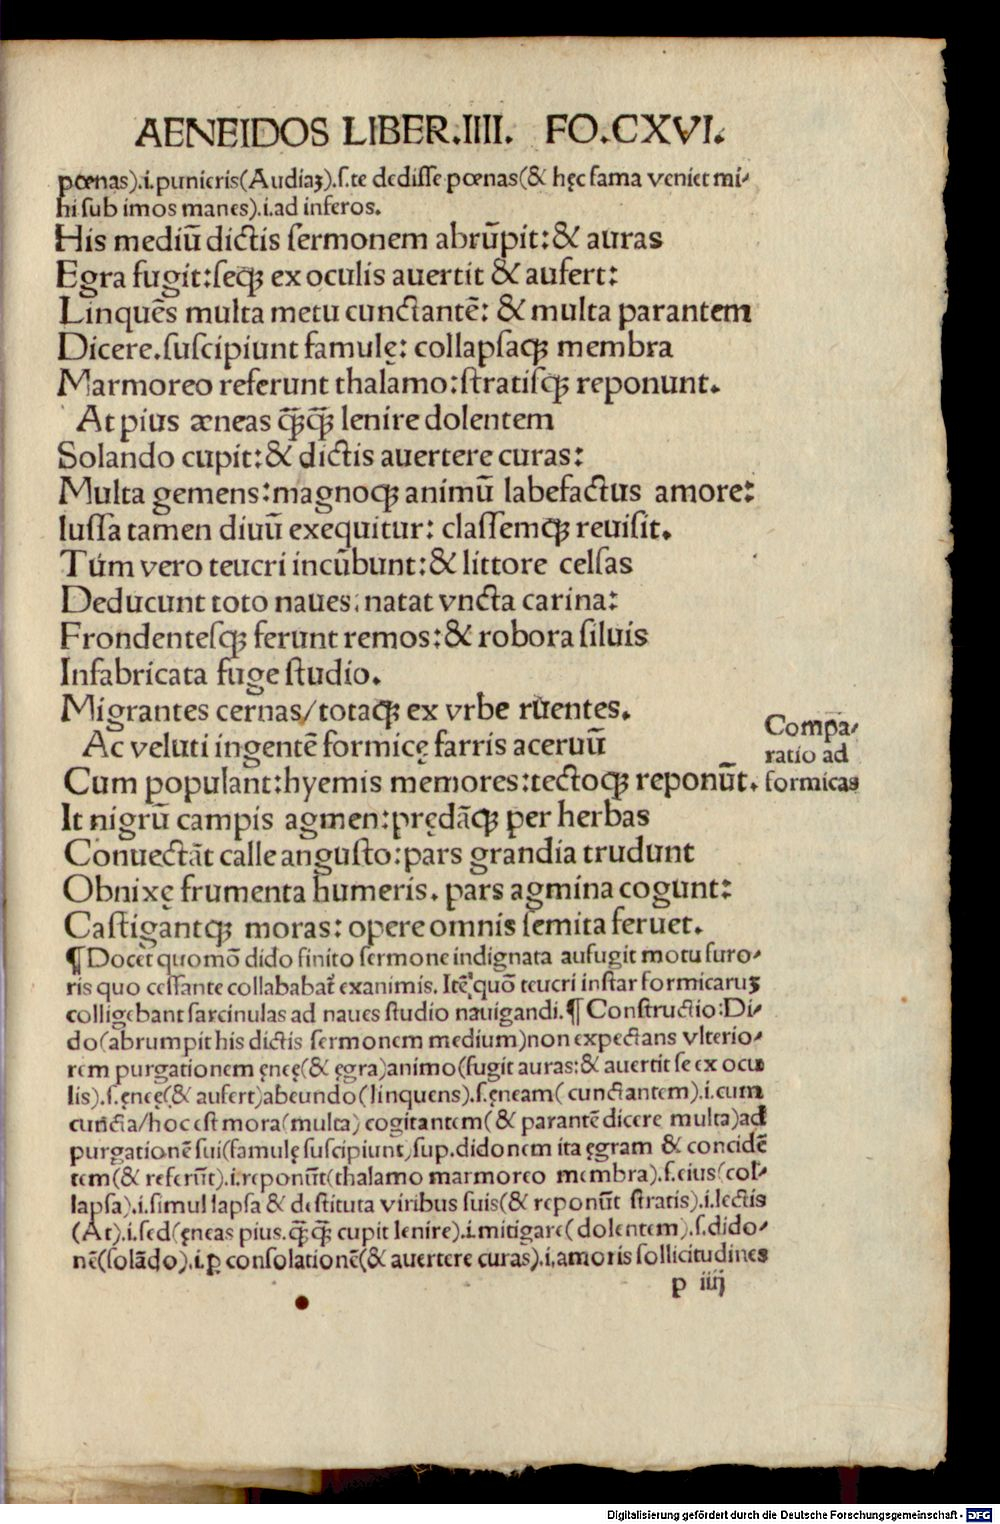 AENEIDOS LIBER.IIII. FO.CXVI.
pœnas).i.punieris(Audiaʒ).ſ.te dediſſe pœnas(& hęc fama veniet mi⸗
hi ſub imos manes).i.ad inferos.
His mediū dictis ſermonem abrūpit:& auras
Egra fugit:ſeqꝫ ex oculis auertit & aufert:
Linquēs multa metu cunctantē: & multa parantem
Dicere.ſuſcipiunt famulę: collapſaqꝫ membra
Marmoreo referunt thalamo:ſtratiſqꝫ reponunt.
At pius æneas q̄ꝫq̄ꝫ lenire dolentem
Solando cupit:& dictis auertere curas:
Multa gemens:magnoqꝫ animū labefactus amore:
Iuſſa tamen diuū exequitur: claſſemqꝫ reuiſit.
Tum vero teucri incūbunt:& littore celſas
Deducunt toto naues: natat vncta carina:
Frondenteſqꝫ ferunt remos:& robora ſiluis
Infabricata fuge ſtudio.
Migrantes cernas/totaqꝫ ex vrbe ruentes.
Ac veluti ingentē formicę farris aceruū
Cum populant:hyemis memores:tectoqꝫ reponūt.
It nigrū campis agmen:prędāqꝫ per herbas
Conuectāt calle anguſto:pars grandia trudunt
Obnixę frumenta humeris. pars agmina cogunt:
Caſtigantqꝫ moras: opere omnis ſemita feruet.
Compa⸗
ratio ad
formicas
¶ Docet quomō dido finito ſermone indignata aufugit motu furo⸗
ris quo ceſſante collababat̄ exanimis. Itē quō teucri inſtar formicaruʒ
colligebant ſarcinulas ad naues ſtudio nauigandi.¶ Conſtructio:Di⸗
do(abrumpit his dictis ſermonem medium)non expectans vlterio⸗
rem purgationem ęnęę(& ęgra)animo(fugit auras:& auertit ſe ex ocu
lis).ſ.ęnęę(& aufert)abeundo(linquens).ſ.ęneam(cunctantem).i.cum
cuncta/hoc eſt mora(multa) cogitantem(& parantē dicere multa)ad
purgationē ſui(famulę ſuſcipiunt)ſup.didonem ita ęgram & concidē
tem(& referūt).i.reponūt(thalamo marmoreo membra).ſ.eius(col⸗
lapſa).i.ſimul lapſa & deſtituta viribus ſuis(& reponūt ſtratis).i.lectis
(At).i.ſed(ęneas pius.q̄ꝫq̄ꝫ cupit lenire).i.mitigare(dolentem).ſ.dido⸗
nē(ſolādo).i.ꝑ conſolationē(& auertere curas).i.amoris ſollicitudines
p iiij
Digitalisierung gefördert durch die Deutsche Forschungsgemeinschaft - DFG